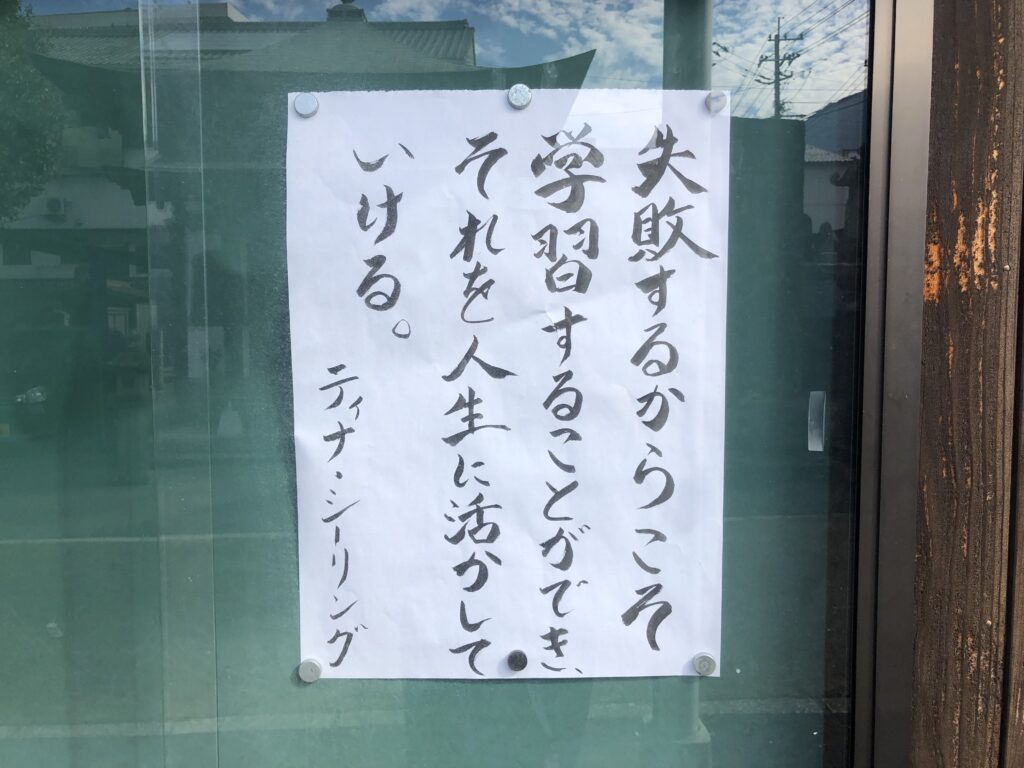 失敗するからこそ
学習することができ、
それを人生に活かして
いける。
ティナ・シーリング